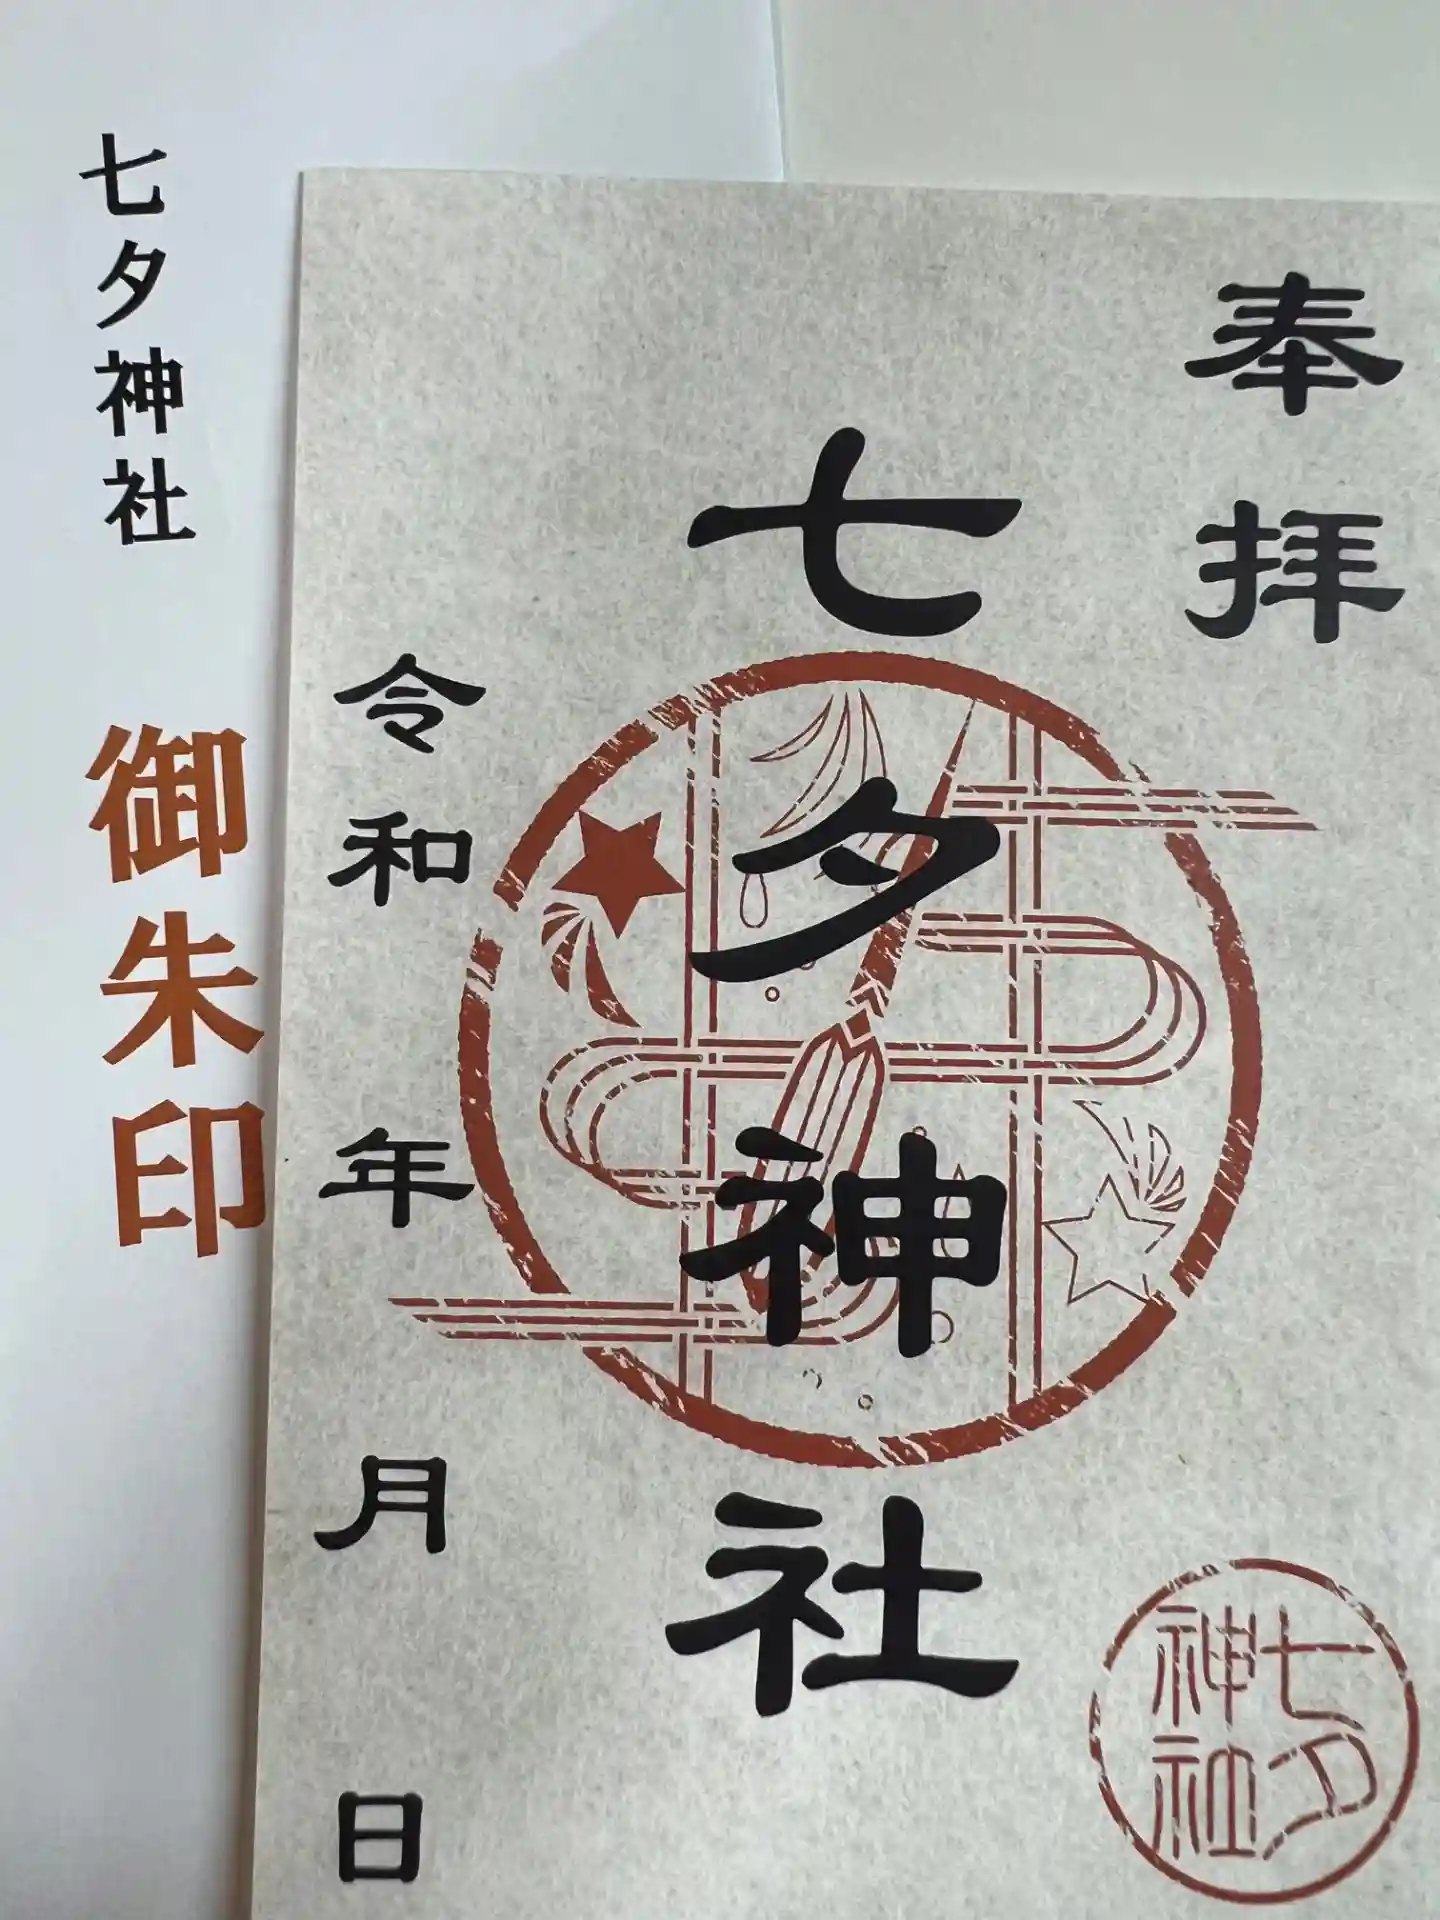 奉拝
七夕神社
令和 年 月 日
七夕神社
七夕神社 御朱印